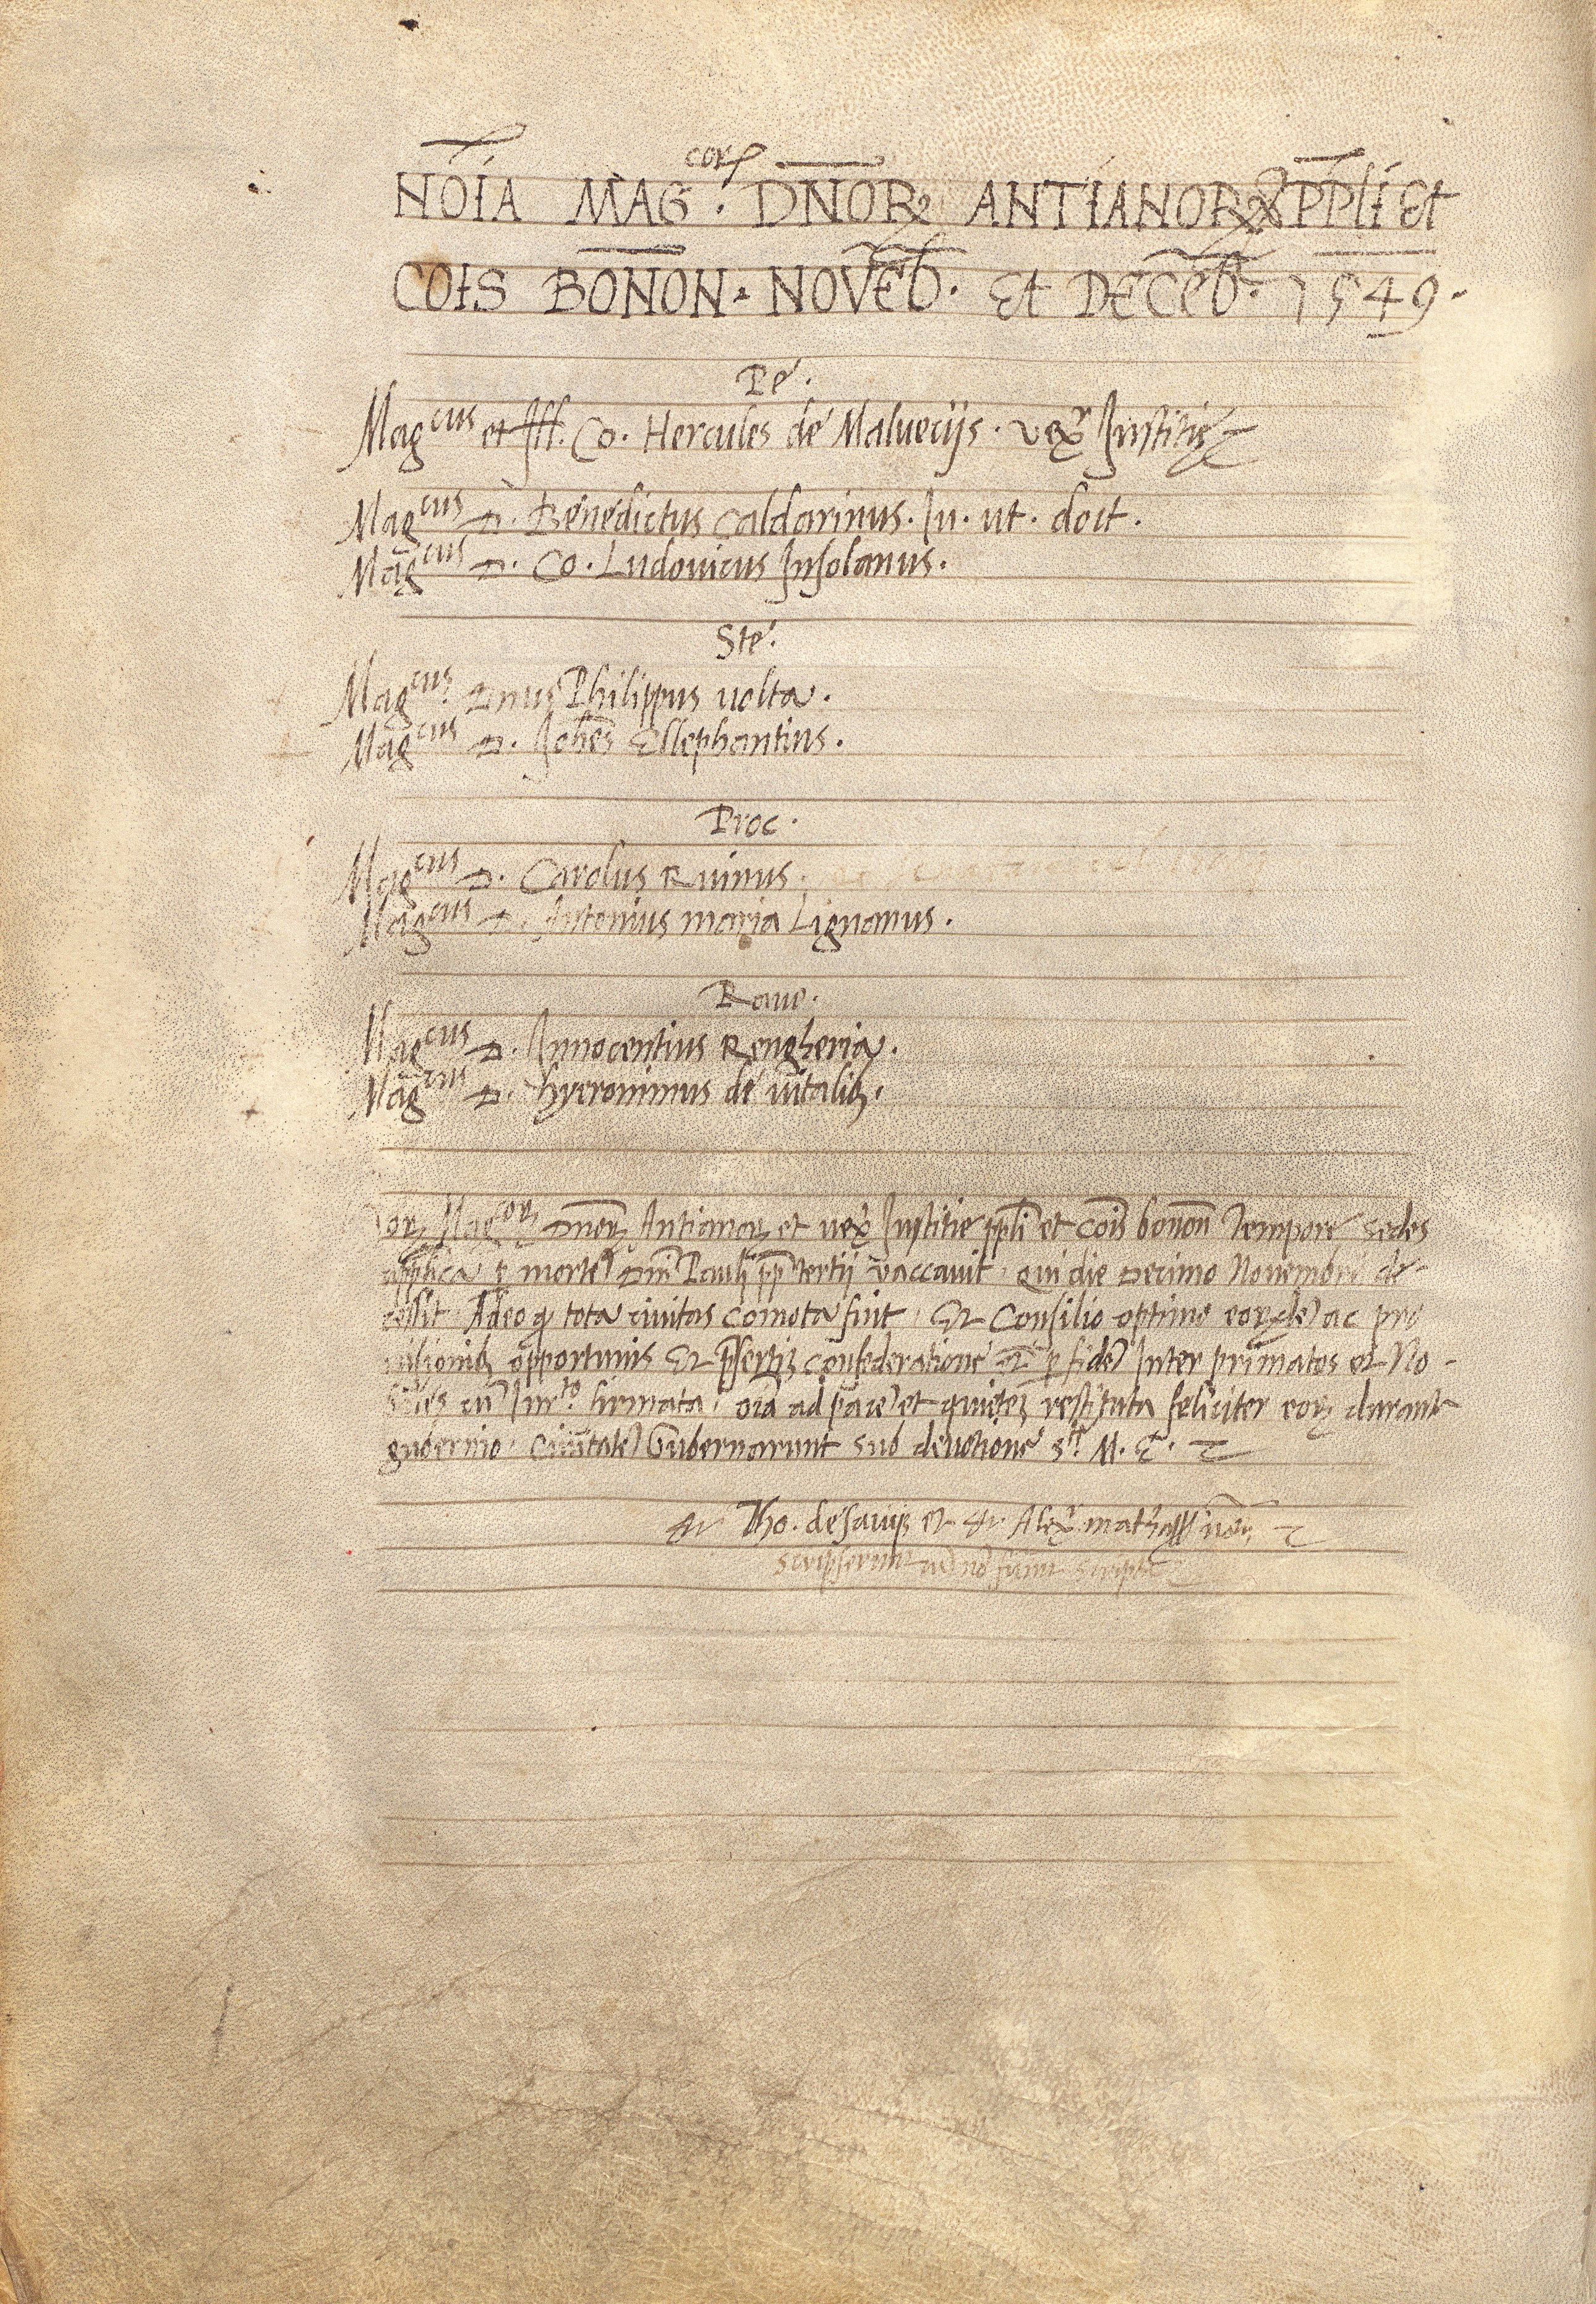 NOĪA MAG^corꝫ. DN̄OꝜ ANTIANOꝜ PP̄LI Et
COIS BON̄ON. NOVĒb. Et DECĒb. 1549.
Pe.
Mag^cus et Ill. Co. Hercules de Maluecijs. vexr Justitie
Mag^cus D. Benedictus Caldarinus. Iu. ut. doct.
Mag^cus D. Co. Ludouicus Insolanus.
Ste.
Mag^cus Dnus Philippus uolta.
Mag^cus D. Johes Ellephantius.
Proc.
Mag^cus D. Carolus Ruinus.
Mag^cus D. Antonius maria Lignanus.
Raue.
Mag^cus D. Innocentius Rengheria.
Mag^cus D. hyeronimus de uitalibꝫ.
Mag^corꝫ Dnorꝫ Antianorꝫ et uexr Justitie ppli et cois bonon Tempore sedes
applica ꝑ morte Dni Pauli pp tertij vaccauit. qui die Decimo Nouembr de-
cessit. Adeo ꝙ tota ciuitas comota fuit. Et Consilio optimo eorunde ac pro
uisionibꝫ opportunis Et pñsertim confederatione et ꝑ fide Inter primates et No-
biles cu Jur^to firmata. oia ad pace et quietem restituta feliciter eorꝫ durante
gubernio. Ciuitate Gubernarunt sub deuotione s^te M. E.
Tho. de sauijs et Alexr. mathas
scripserunt no sunt scripta